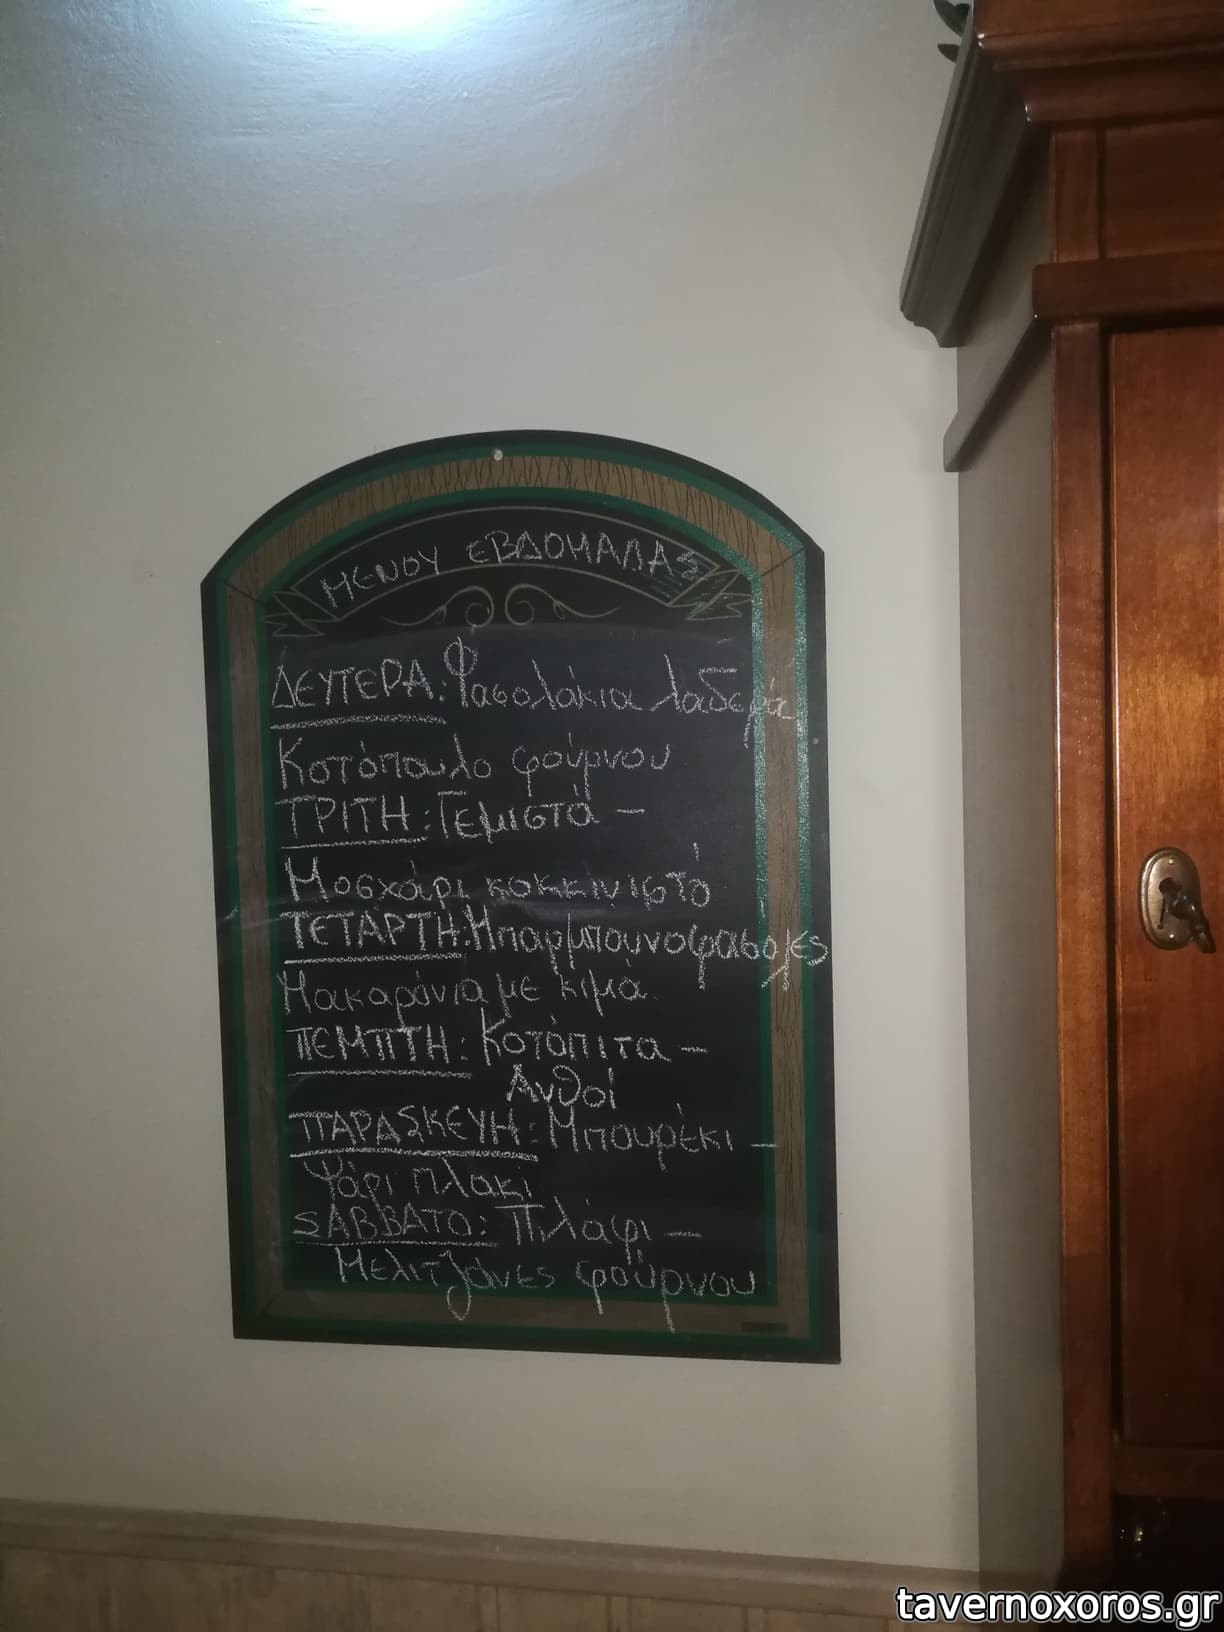 ΜΕΝΟΥ ΕΒΔΟΜΑΔΑΣ
ΔΕΥΤΕΡΑ: Φασολάκια λαδερά
Κοτόπουλο φούρνου
ΤΡΙΤΗ: Γεμιστά –
Μοσχάρι κοκκινιστό
ΤΕΤΑΡΤΗ: Μπαρμπουνοφασολες
Μακαρόνια με κιμά
ΠΕΜΠΤΗ: Κοτόπιτα –
Ανθοί
ΠΑΡΑΣΚΕΥΗ: Μπουρέκι –
Ψάρι πλακί
ΣΑΒΒΑΤΟ: Πιλάφι –
Μελιτζάνες φούρνου
tavernoxoros.gr